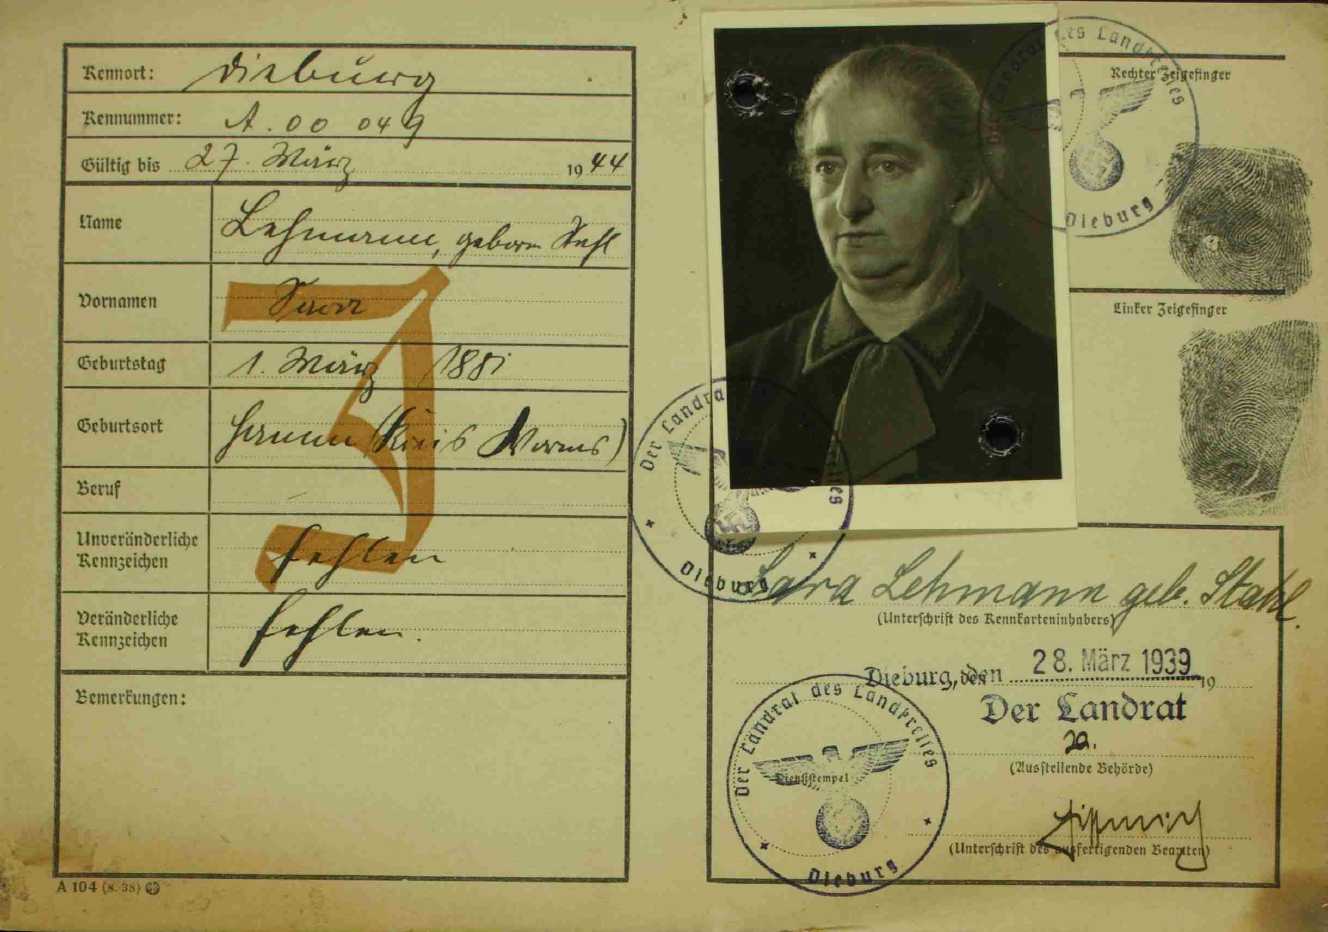 Kennort: Dieburg
Kennummer: A. 00 049
Gültig bis 27. März 1944
Name Lehmann, geborn Stahl
Vornamen Sara
Geburtstag 1. März 1881
Geburtsort Hamm (Kreis Worms)
Beruf
Unveränderliche
Kennzeichen
fehlen
Veränderliche
Kennzeichen
fehlen.
Bemerkungen:
J
A 104 (8. 38)
Rechter Zeigefinger
Linker Zeigefinger
Der Landrat des Landkreises
Dieburg
Der Landrat des Landkreises
Dieburg
Sara Lehmann geb. Stahl.
(Unterschrift des Kennkarteninhabers)
Dieburg, den 28. März 1939 19
Der Landrat
(Ausstellende Behörde)
Der Landrat des Landkreises
Dienststempel
Dieburg
(Unterschrift des ausfertigenden Beamten)